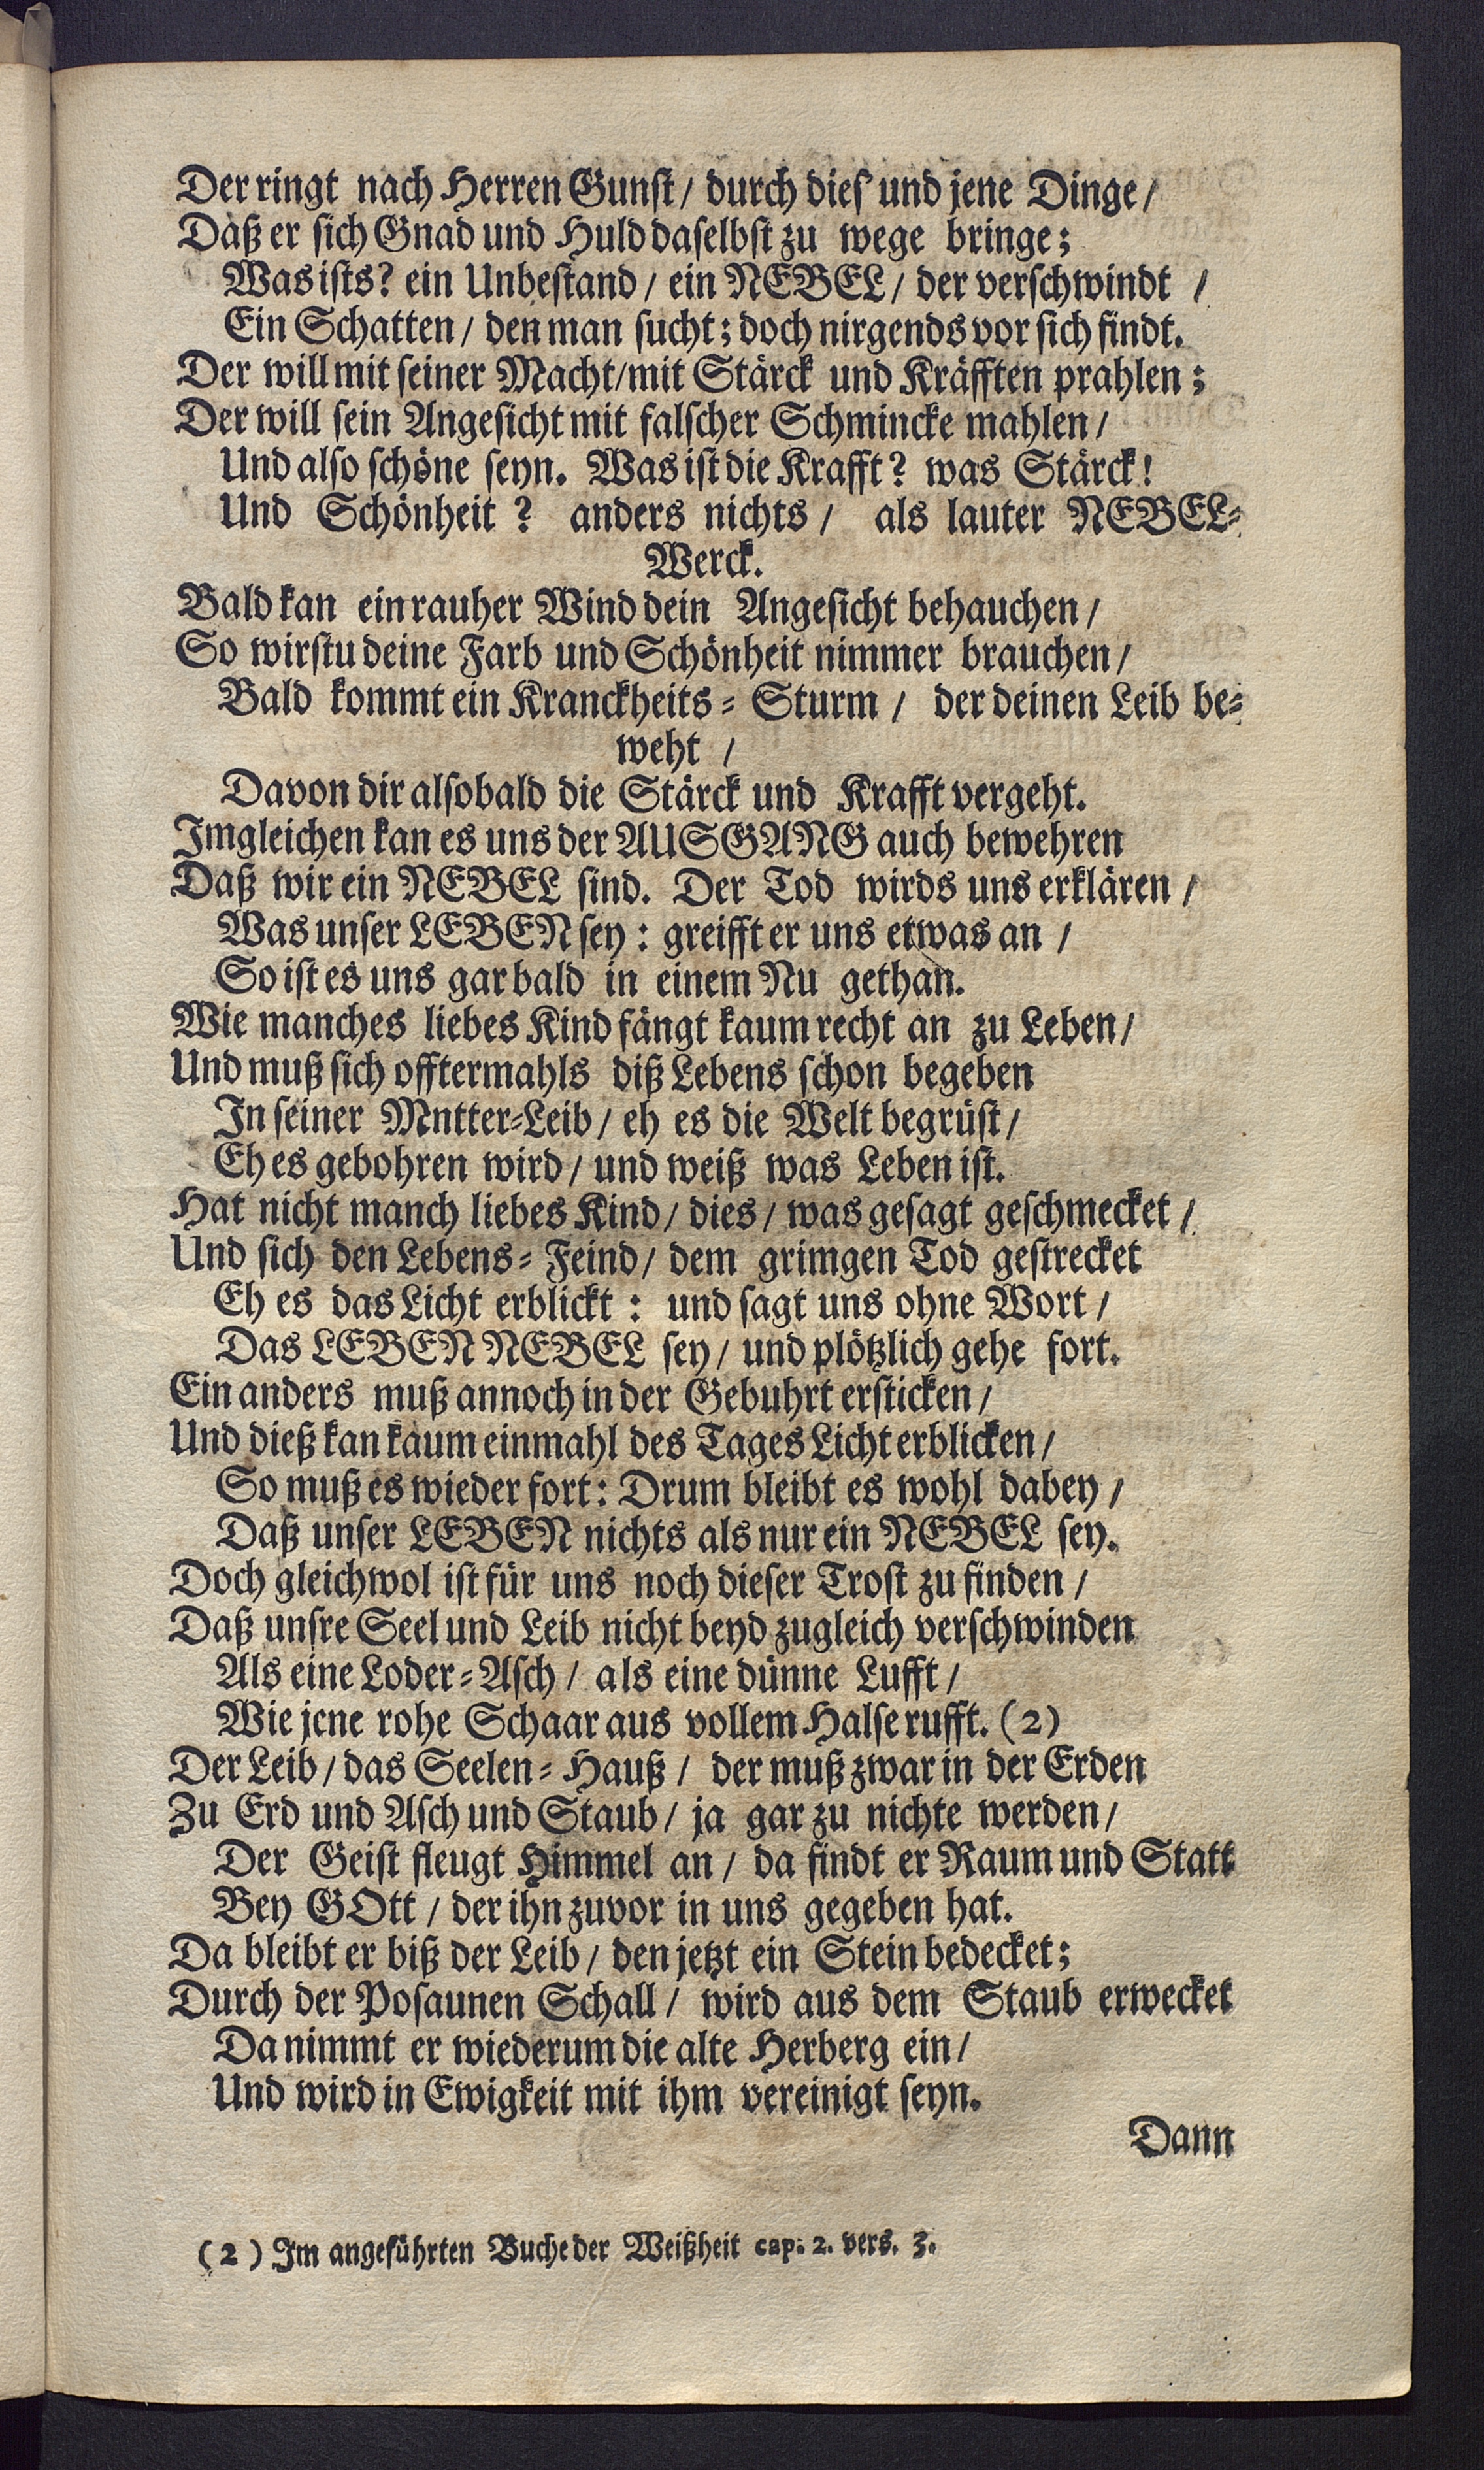 Der ringt nach Herren Gunst / durch dies und jene Dinge /
Daß er sich Gnad und Huld daselbst zu wege bringe;
Was ists? ein Unbestand / ein NEBEL / der verschwindt /
Ein Schatten / den man sucht; doch nirgends vor sich findt.
Der will mit seiner Macht/mit Stärck und Kräfften prahlen;
Der will sein Angesicht mit falscher Schmincke mahlen /
Und also schöne seyn. Was ist die Krafft? was Stärck!
Und Schönheit? anders nichts / als lauter NEBEL-
Werck.
Bald kan ein rauher Wind dein Angesicht behauchen /
So wirstu deine Farb und Schönheit nimmer brauchen /
Bald kommt ein Kranckheits-Sturm / der deinen Leib be-
weht /
Davon dir alsobald die Stärck und Krafft vergeht.
Imgleichen kan es uns der AUSGANG auch bewehren
Daß wir ein NEBEL sind. Der Tod wirds uns erklären /
Was unser LEBEN sey: greifft er uns etwas an /
So ist es uns gar bald in einem Nu gethan.
Wie manches liebes Kind fängt kaum recht an zu Leben /
Und muß sich offtermahls diß Lebens schon begeben
In seiner Mntter-Leib / eh es die Welt begrüst /
Eh es gebohren wird / und weiß was Leben ist.
Hat nicht manch liebes Kind / dies / was gesagt geschmecket /
Und sich den Lebens-Feind / dem grimgen Tod gestrecket
Eh es das Licht erblickt: und sagt uns ohne Wort /
Das LEBEN NEBEL sey / und plötzlich gehe fort.
Ein anders muß annoch in der Gebuhrt ersticken /
Und dieß kan kaum einmahl des Tages Licht erblicken /
So muß es wieder fort: Drum bleibt es wohl dabey /
Daß unser LEBEN nichts als nur ein NEBEL sey.
Doch gleichwol ist für uns noch dieser Trost zu finden /
Daß unsre Seel und Leib nicht beyd zugleich verschwinden
Als eine Loder-Asch / als eine dünne Lufft /
Wie jene rohe Schaar aus vollem Halse rufft. (2)
Der Leib / das Seelen-Hauß / der muß zwar in der Erden
Zu Erd und Asch und Staub / ja gar zu nichte werden /
Der Geist fleugt Himmel an / da findt er Raum und Statt
Bey GOtt / der ihn zuvor in uns gegeben hat.
Da bleibt er biß der Leib / den jetzt ein Stein bedecket;
Durch der Posaunen Schall / wird aus dem Staub erwecket
Da nimmt er wiederum die alte Herberg ein /
Und wird in Ewigkeit mit ihm vereinigt seyn.
Dann
(2) Im angeführten Buche der Weißheit cap. 2. vers. 3.